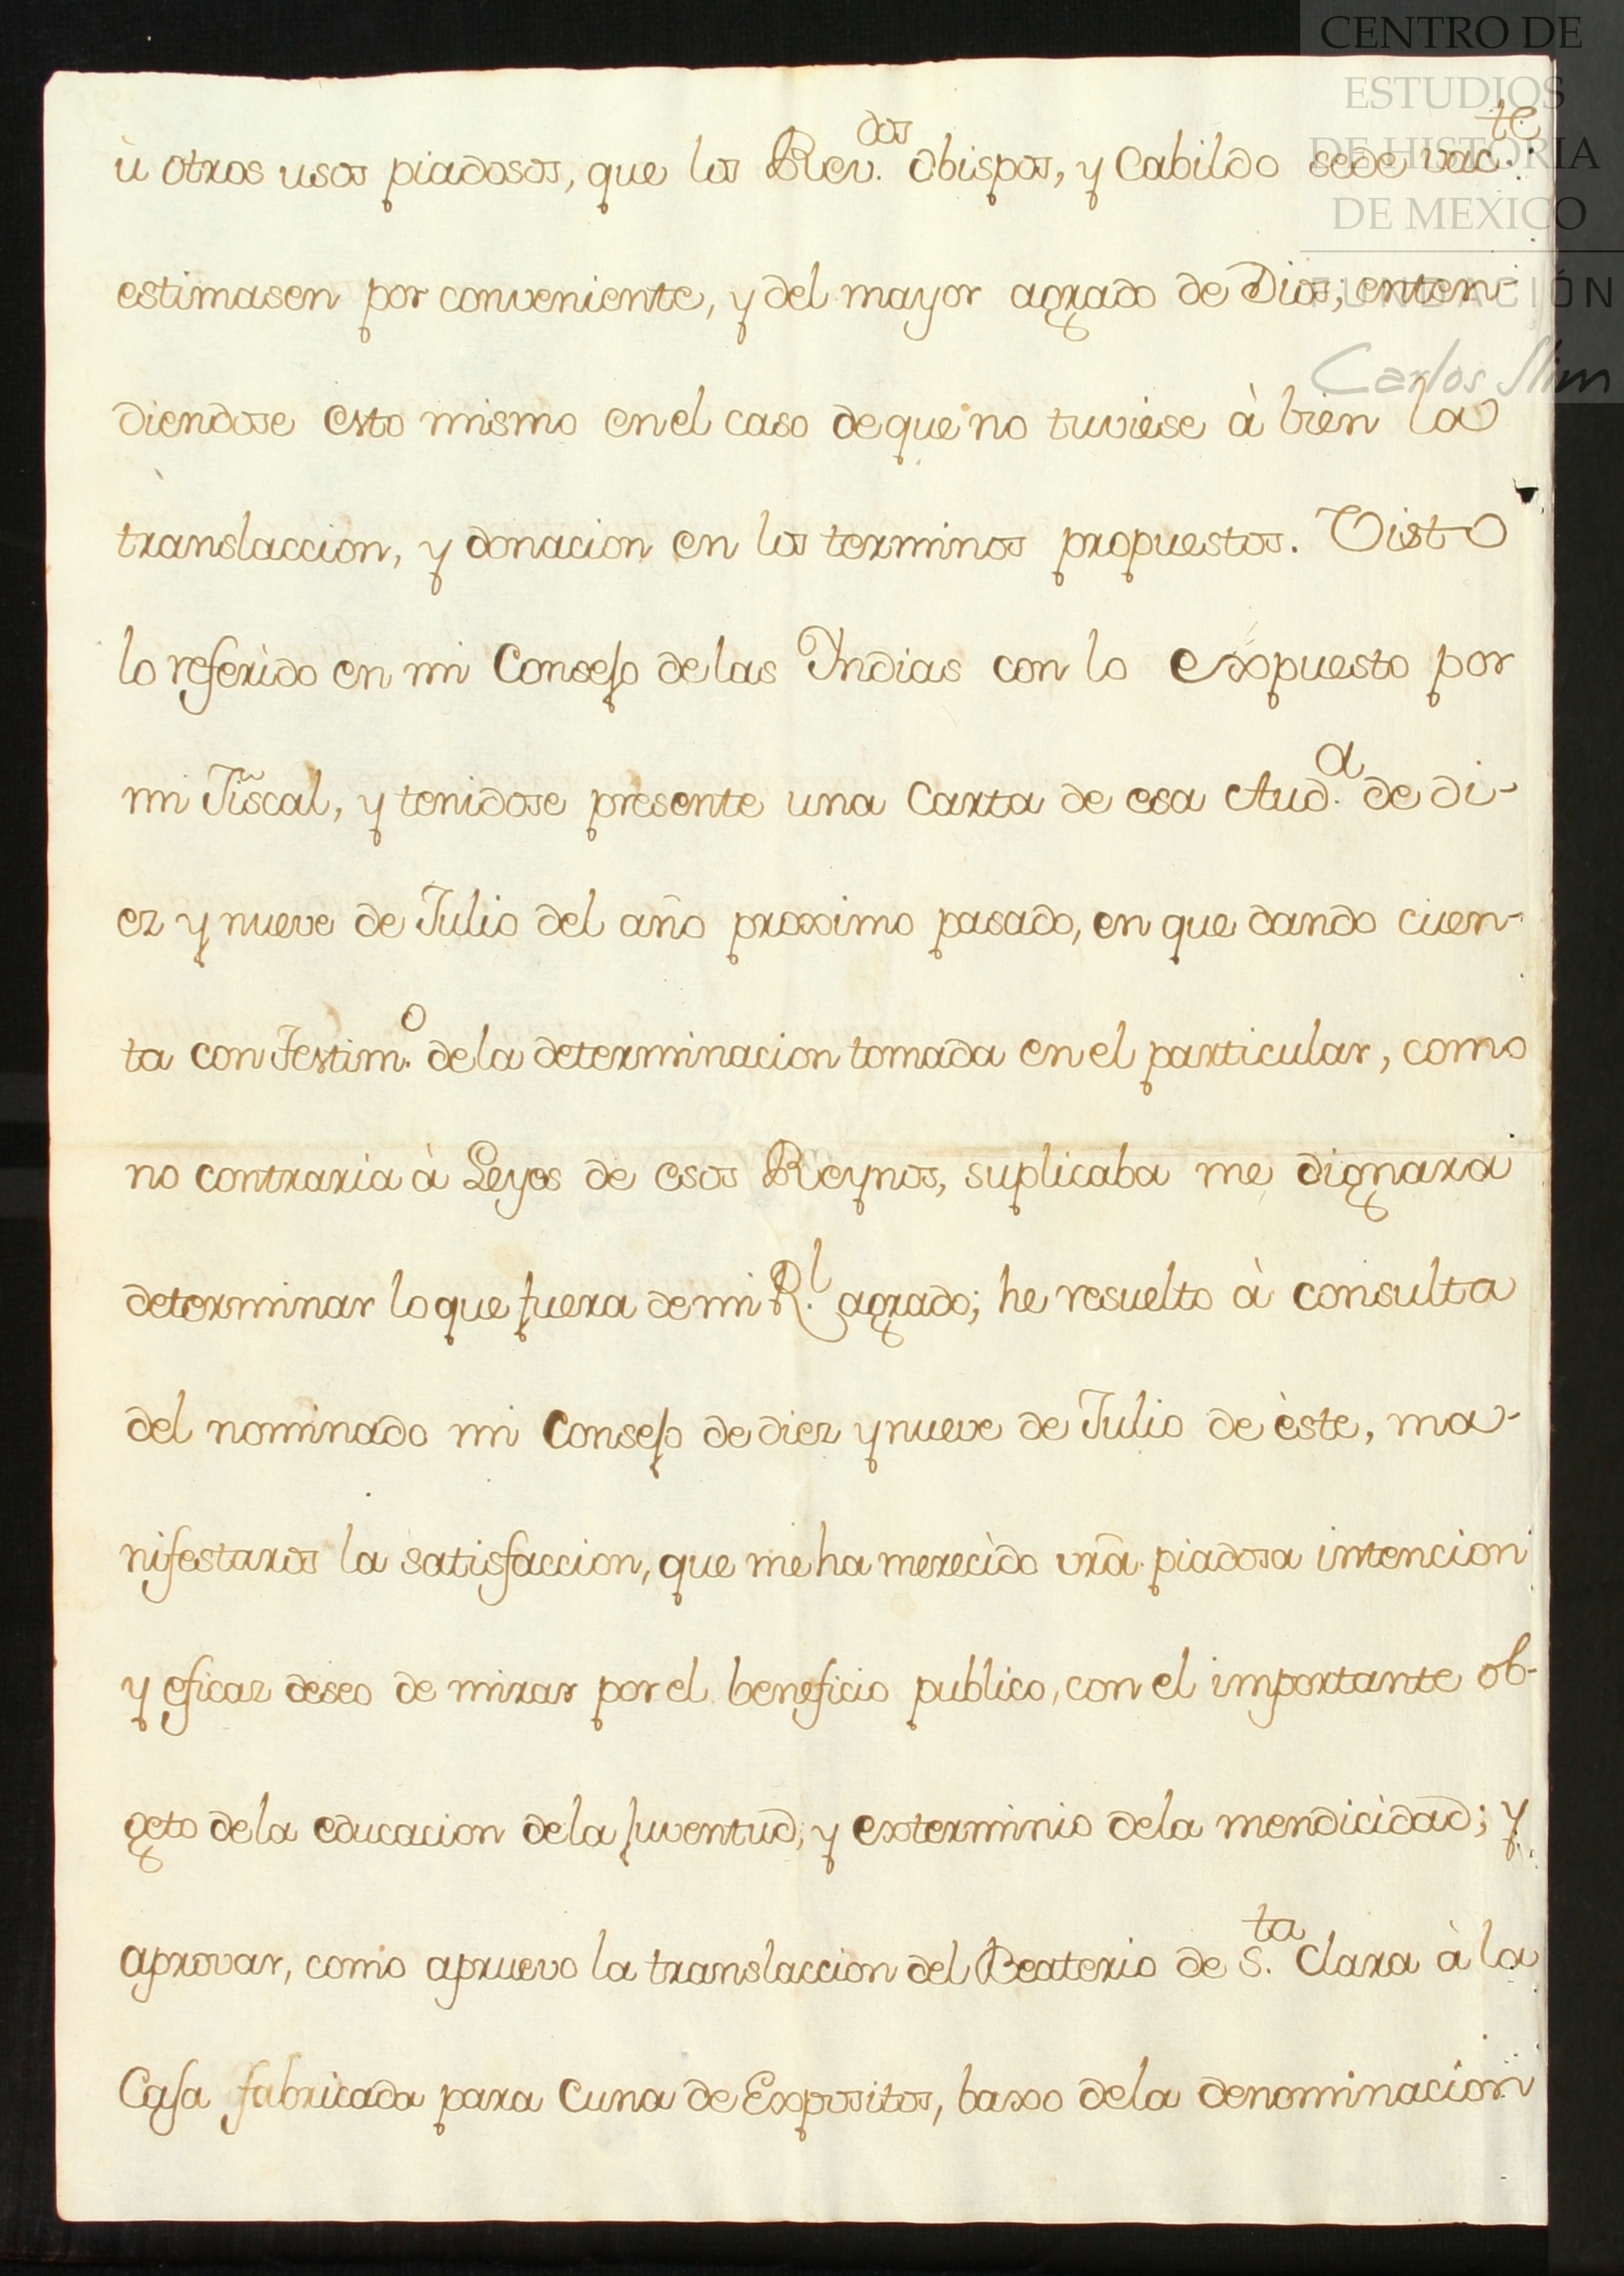 CENTRO DE
ESTUDIOS
DE HISTORIA
DE MEXICO
FUNDACIÓN
Carlos Slim
ù otros usos piadosos, que los Rev.dos Obispos, y Cabildo sede vac.te
estimasen por conveniente, y del mayor agrado de Dios; enten-
diendose esto mismo en el caso de que no tuviese à bien la
translaccion, y donacion en los terminos propuestos. Visto
lo referido en mi Consejo de las Yndias con lo expuesto por
mi Fiscal, y tenidose presente una Carta de esa Aud.a de di-
ez y nueve de Julio del año proximo pasado, en que dando cuen-
ta con Testim.o de la determinacion tomada en el particular, como
no contraria à Leyes de esos Reynos, suplicaba me dignara
determinar lo que fuera de mi R.l agrado; he resuelto à consulta
del nominado mi Consejo de diez y nueve de Julio de èste, ma-
nifestaros la satisfaccion, que me ha merecido vrã piadosa intencion
y eficaz deseo de mirar por el beneficio publico, con el importante ob-
geto de la educacion de la juventud, y exterminio de la mendicidad; y
aprovar, como apruevo la translaccion del Beaterio de S.ta Clara à la
Casa fabricada para Cuna de Expositos, baxo de la denominacion